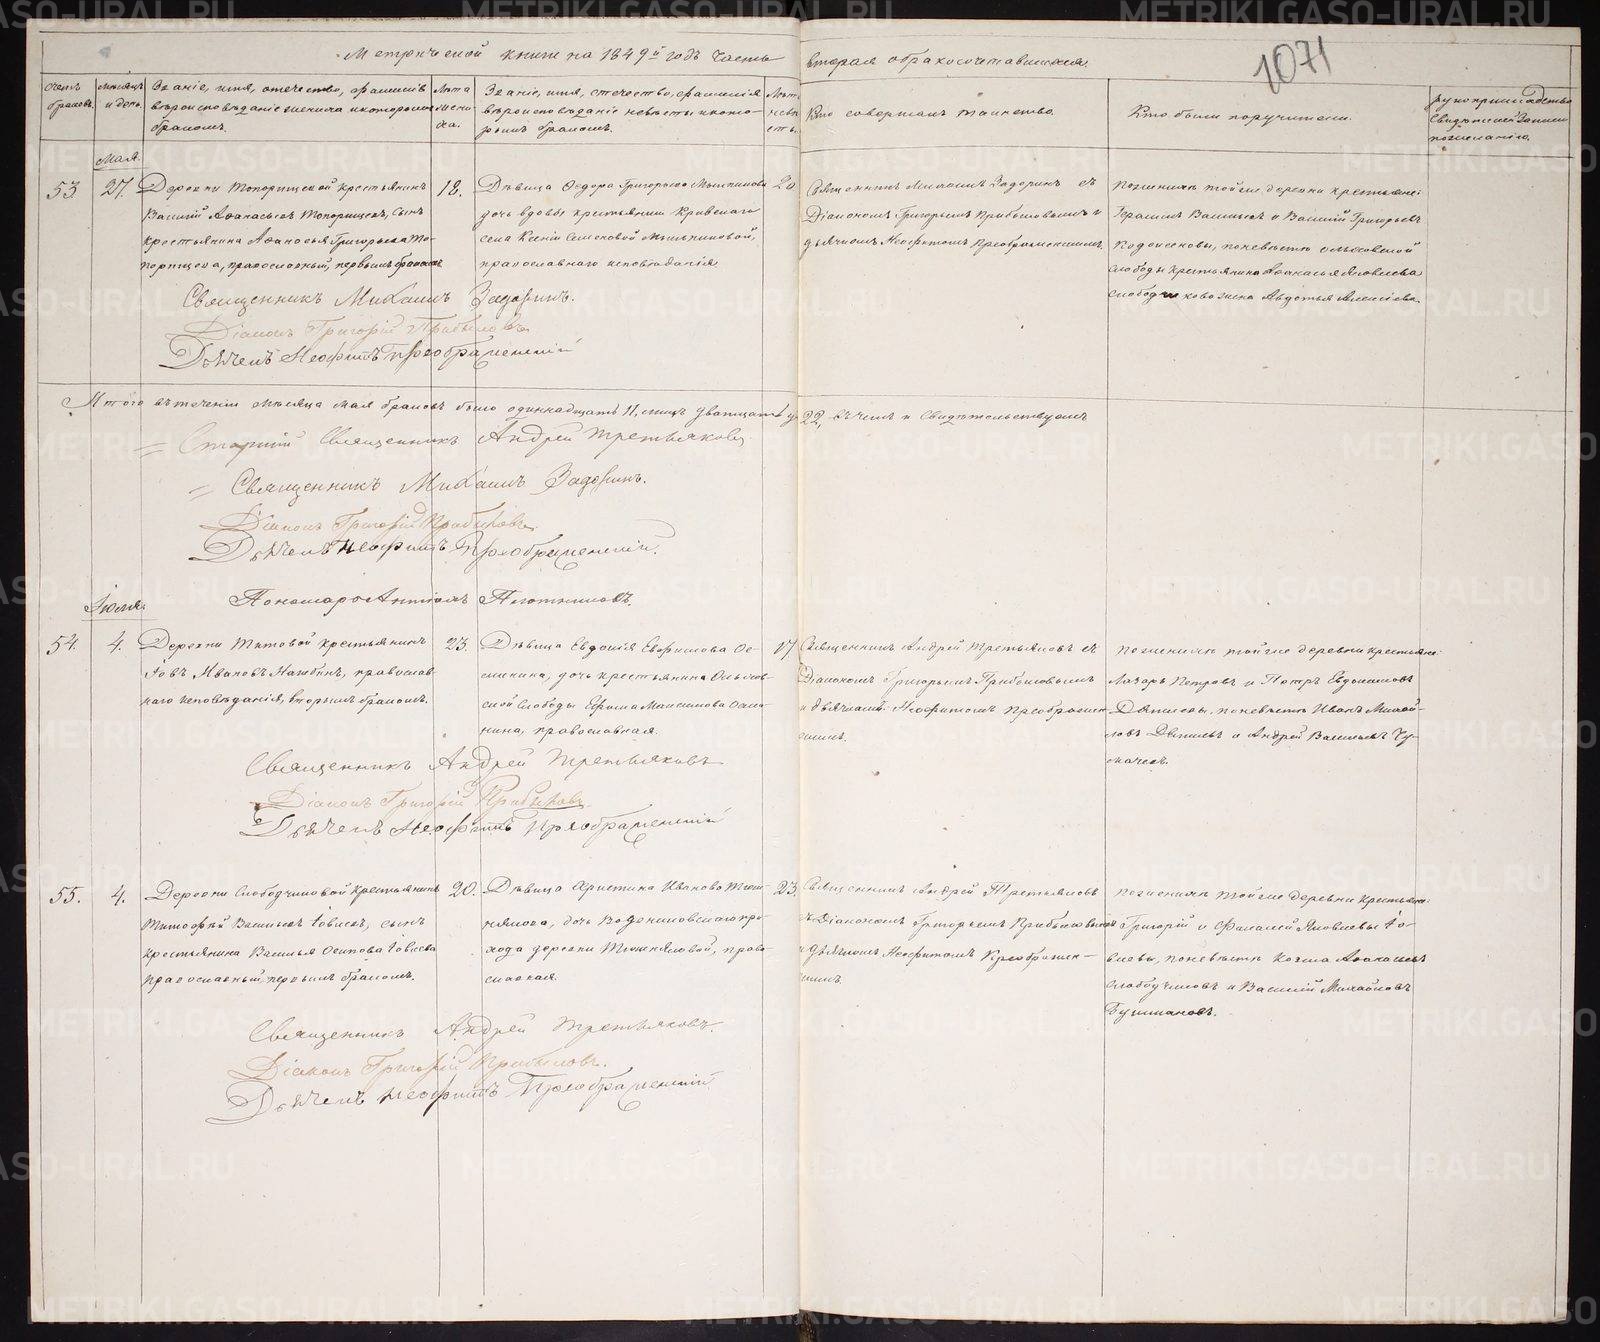 Метрической книги на 1849й годъ часть вторая о бракосочетавшихся.
1071
Счетъ браковъ.
Мѣсяцъ и день.
Званіе, имя, отечество, фамилія
вѣроисповѣданіе жениха и которымъ
бракомъ.
Лѣта жениха.
Званіе, имя, отечество, фамилія
вѣроисповѣданіе невѣсты и кото-
рымъ бракомъ.
Лѣта невѣсты.
Кто совершалъ таинство.
Кто были поручители.
Рукоприкладство
свидѣтелей записи
по желанію.
Мая.
53.
27.
Деревни Топорищевой крестьянинъ
Василій Аѳанасьевъ Топорищевъ, сынъ
крестьянина Аѳанасья Григорьева То-
порищева, православный, первымъ бракомъ
18.
Дѣвица Ѳедора Григорьева
дочь вдовы крестьянки Кривскаго
села Ксеніи Семеновой
православнаго исповѣданія
20
Священникъ Михаилъ Задоринъ съ
Діакономъ Григорьемъ Прибыловымъ и
дьячкомъ Неофитомъ Преображенскимъ.
По женихѣ тойже деревни крестьяне:
Герасимъ Васильевъ и Василій Григорьевъ
по невѣстѣ Ольховской
слободы крестьянина Аѳанасья Яковлева
жена Авдотья Алексіева.
Священникъ Михаилъ Задоринъ.
Діаконъ Григорій Прибыловъ
Дьячекъ Неофитъ Преображенскій
Итого въ теченіи мѣсяца мая браковъ было одиннадцать 11, лицъ дватцать два 22, въ чемъ и свидѣтельствуемъ
Старшій Священникъ Андрей Третьяковъ
Священникъ Михаилъ Задоринъ.
Діаконъ Григорій Прибыловъ
Дьячекъ Неофитъ Преображенскій.
Пономарь Антоній Плотниковъ.
Іюля.
54.
4.
Деревни Титовой крестьянинъ
Іовъ Ивановъ православ-
наго исповѣданія, вторымъ бракомъ.
23.
Дѣвица Евдокія Ефимова Ос-
дочь крестьянина Ольхов-
ской слободы Ефима Максимова
православная.
17
Священникъ Андрей Третьяковъ съ
Діакономъ Григорьемъ Прибыловымъ
и дьячкомъ Неофитомъ Преображен-
скимъ.
По женихѣ тойже деревни крестьяне:
Лазарь Петровъ и Петръ Евдокимовъ
по невѣстѣ Иванъ Михай-
ловъ и Андрей Васильевъ Чу-
мачевъ.
Священникъ Андрей Третьяковъ
Діаконъ Григорій Прибыловъ
Дьячекъ Неофитъ Преображенскій
55.
4.
Деревни Слободчиковой крестьянинъ
Тимофей Васильевъ Іовлевъ, сынъ
крестьянина Василья Осипова Іовлева
православный, первымъ бракомъ.
20.
Дѣвица Христина Иванова
дочь Воденниковскаго при-
хода деревни право-
славная.
23.
Священникъ Андрей Третьяковъ
съ Діакономъ Григорьемъ Прибыловымъ
и дьячкомъ Неофитомъ Преображен-
скимъ.
По женихѣ тойже деревни крестьяне:
Григорій и Фалалей Яковлевы Іо-
влевы, по невѣстѣ Козма Аѳанасьевъ
Слободчиковъ и Василій Михайловъ
Бушмановъ.
Священникъ Андрей Третьяковъ.
Діаконъ Григорій Прибыловъ.
Дьячекъ Неофитъ Преображенскій
METRIKI.GASO-URAL.RU